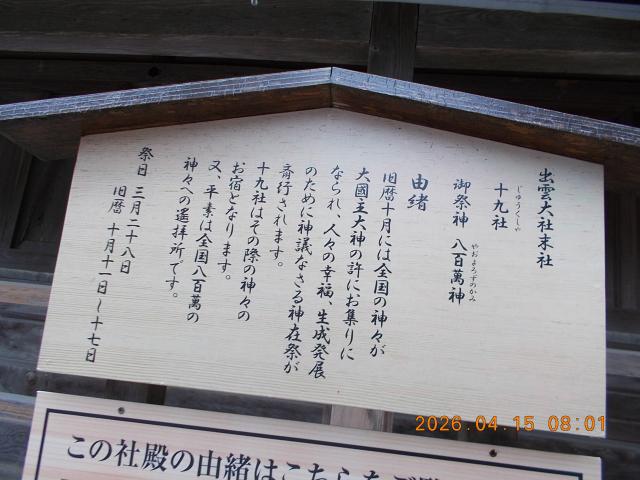 出雲大社末社
じゅうくしゃ
十九社
やおよろずのかみ
御祭神 八百萬神
由緒
旧暦十月には全国の神々が
大國主大神の許にお集りに
なられ、人々の幸福、生成発展
のために神議なさる神在祭が
斎行されます。
十九社はその際の神々の
お宿となります。
又、平素は全国八百萬の
神々への遙拝所です。
祭日 三月二十八日
旧暦 十月十一日～十七日
この社殿の由緒はこちらをご
2026.04.15 08:01